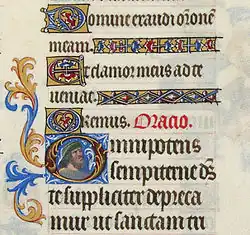 Domine exaudi or̄onē
meam.
Et clamor meus ad te
veniat.
Oremus. Oracio.
Omnipotens
sempiterne ds̄
te suppliciter depreca
mur ut sanctam tu